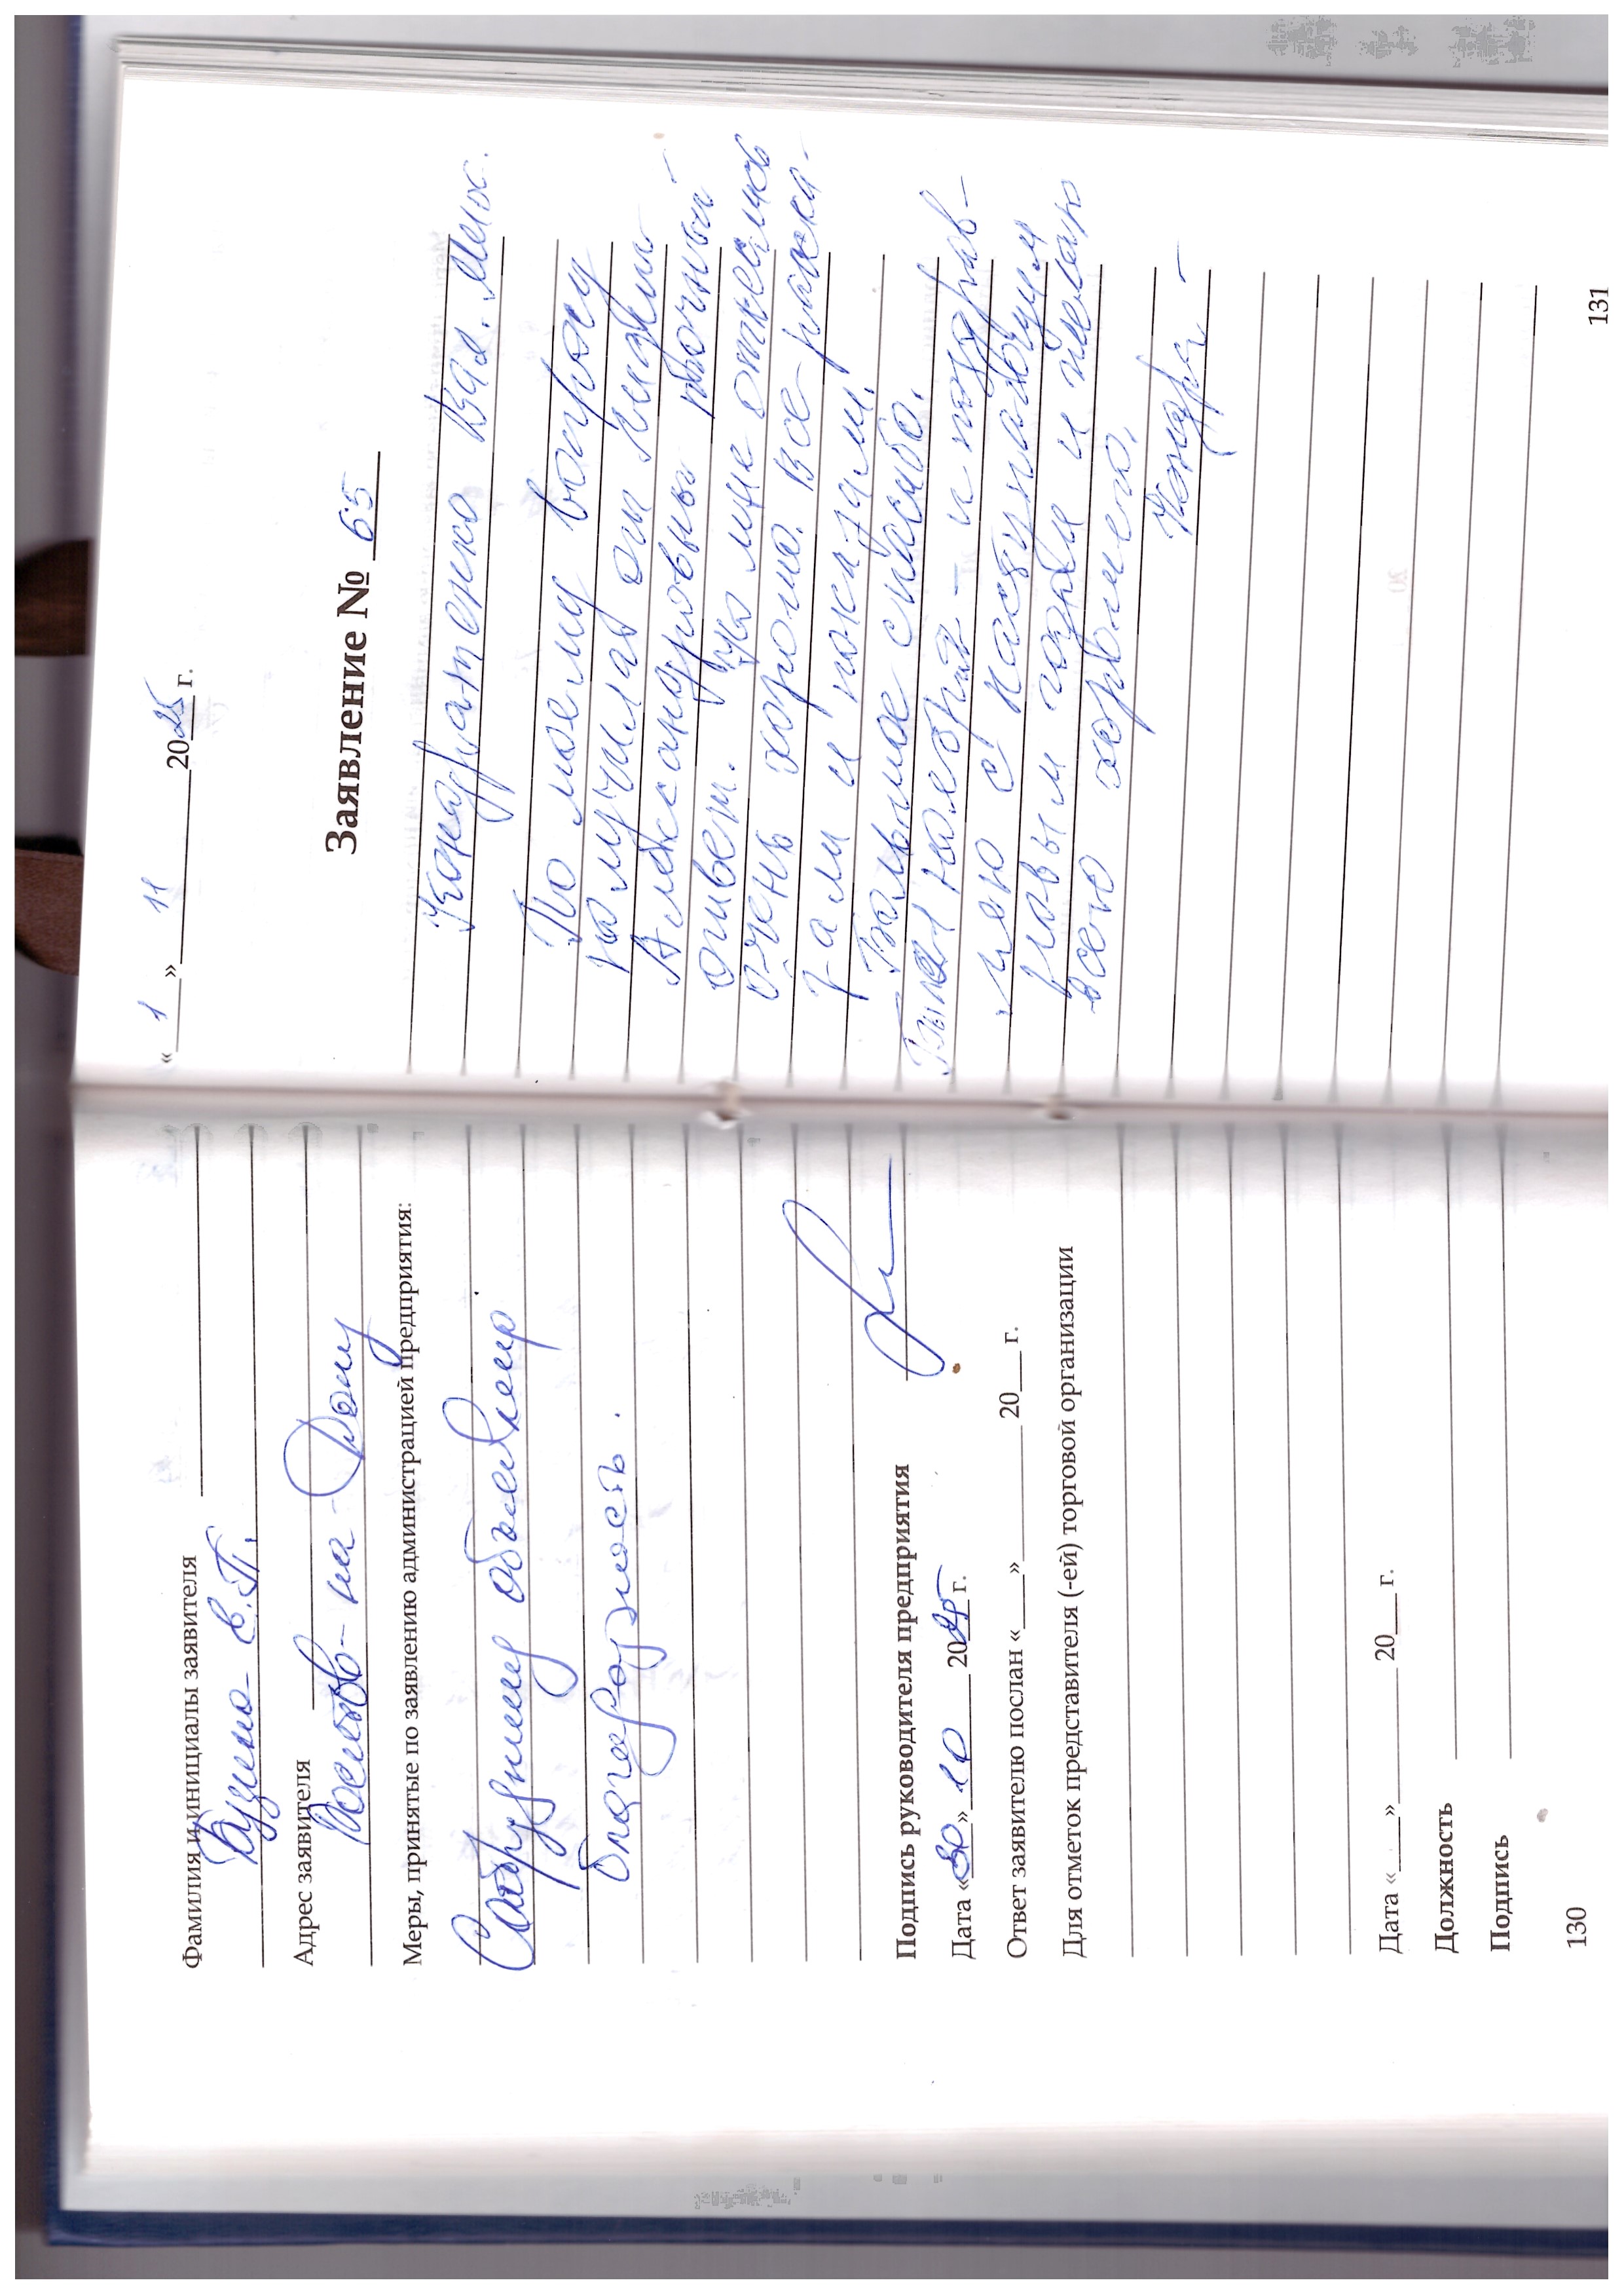 Фамилия и инициалы заявителя
Бущено Е.П.
Адрес заявителя
Ростов-на-Дону
Меры, принятые по заявлению администрацией предприятия:
Сотруднику объявлена
благодарность.
Подпись руководителя предприятия
Дата «30» 10 2025 г.
Ответ заявителю послан «___» ______ 20__ г.
Для отметок представителя (-ей) торговой организации
Дата «___» ______ 20__ г.
Должность
Подпись
130
«1» 11 2025 г.
Заявление № 65
Кондратенко
По моему вопросу
получила от
Александровны точный
ответ. мне
очень хорошо. Все расска-
зали и показали.
Большое спасибо.
и поздрав-
ляю с наступающим
Новым годом и желаю
всего хорошего.
131